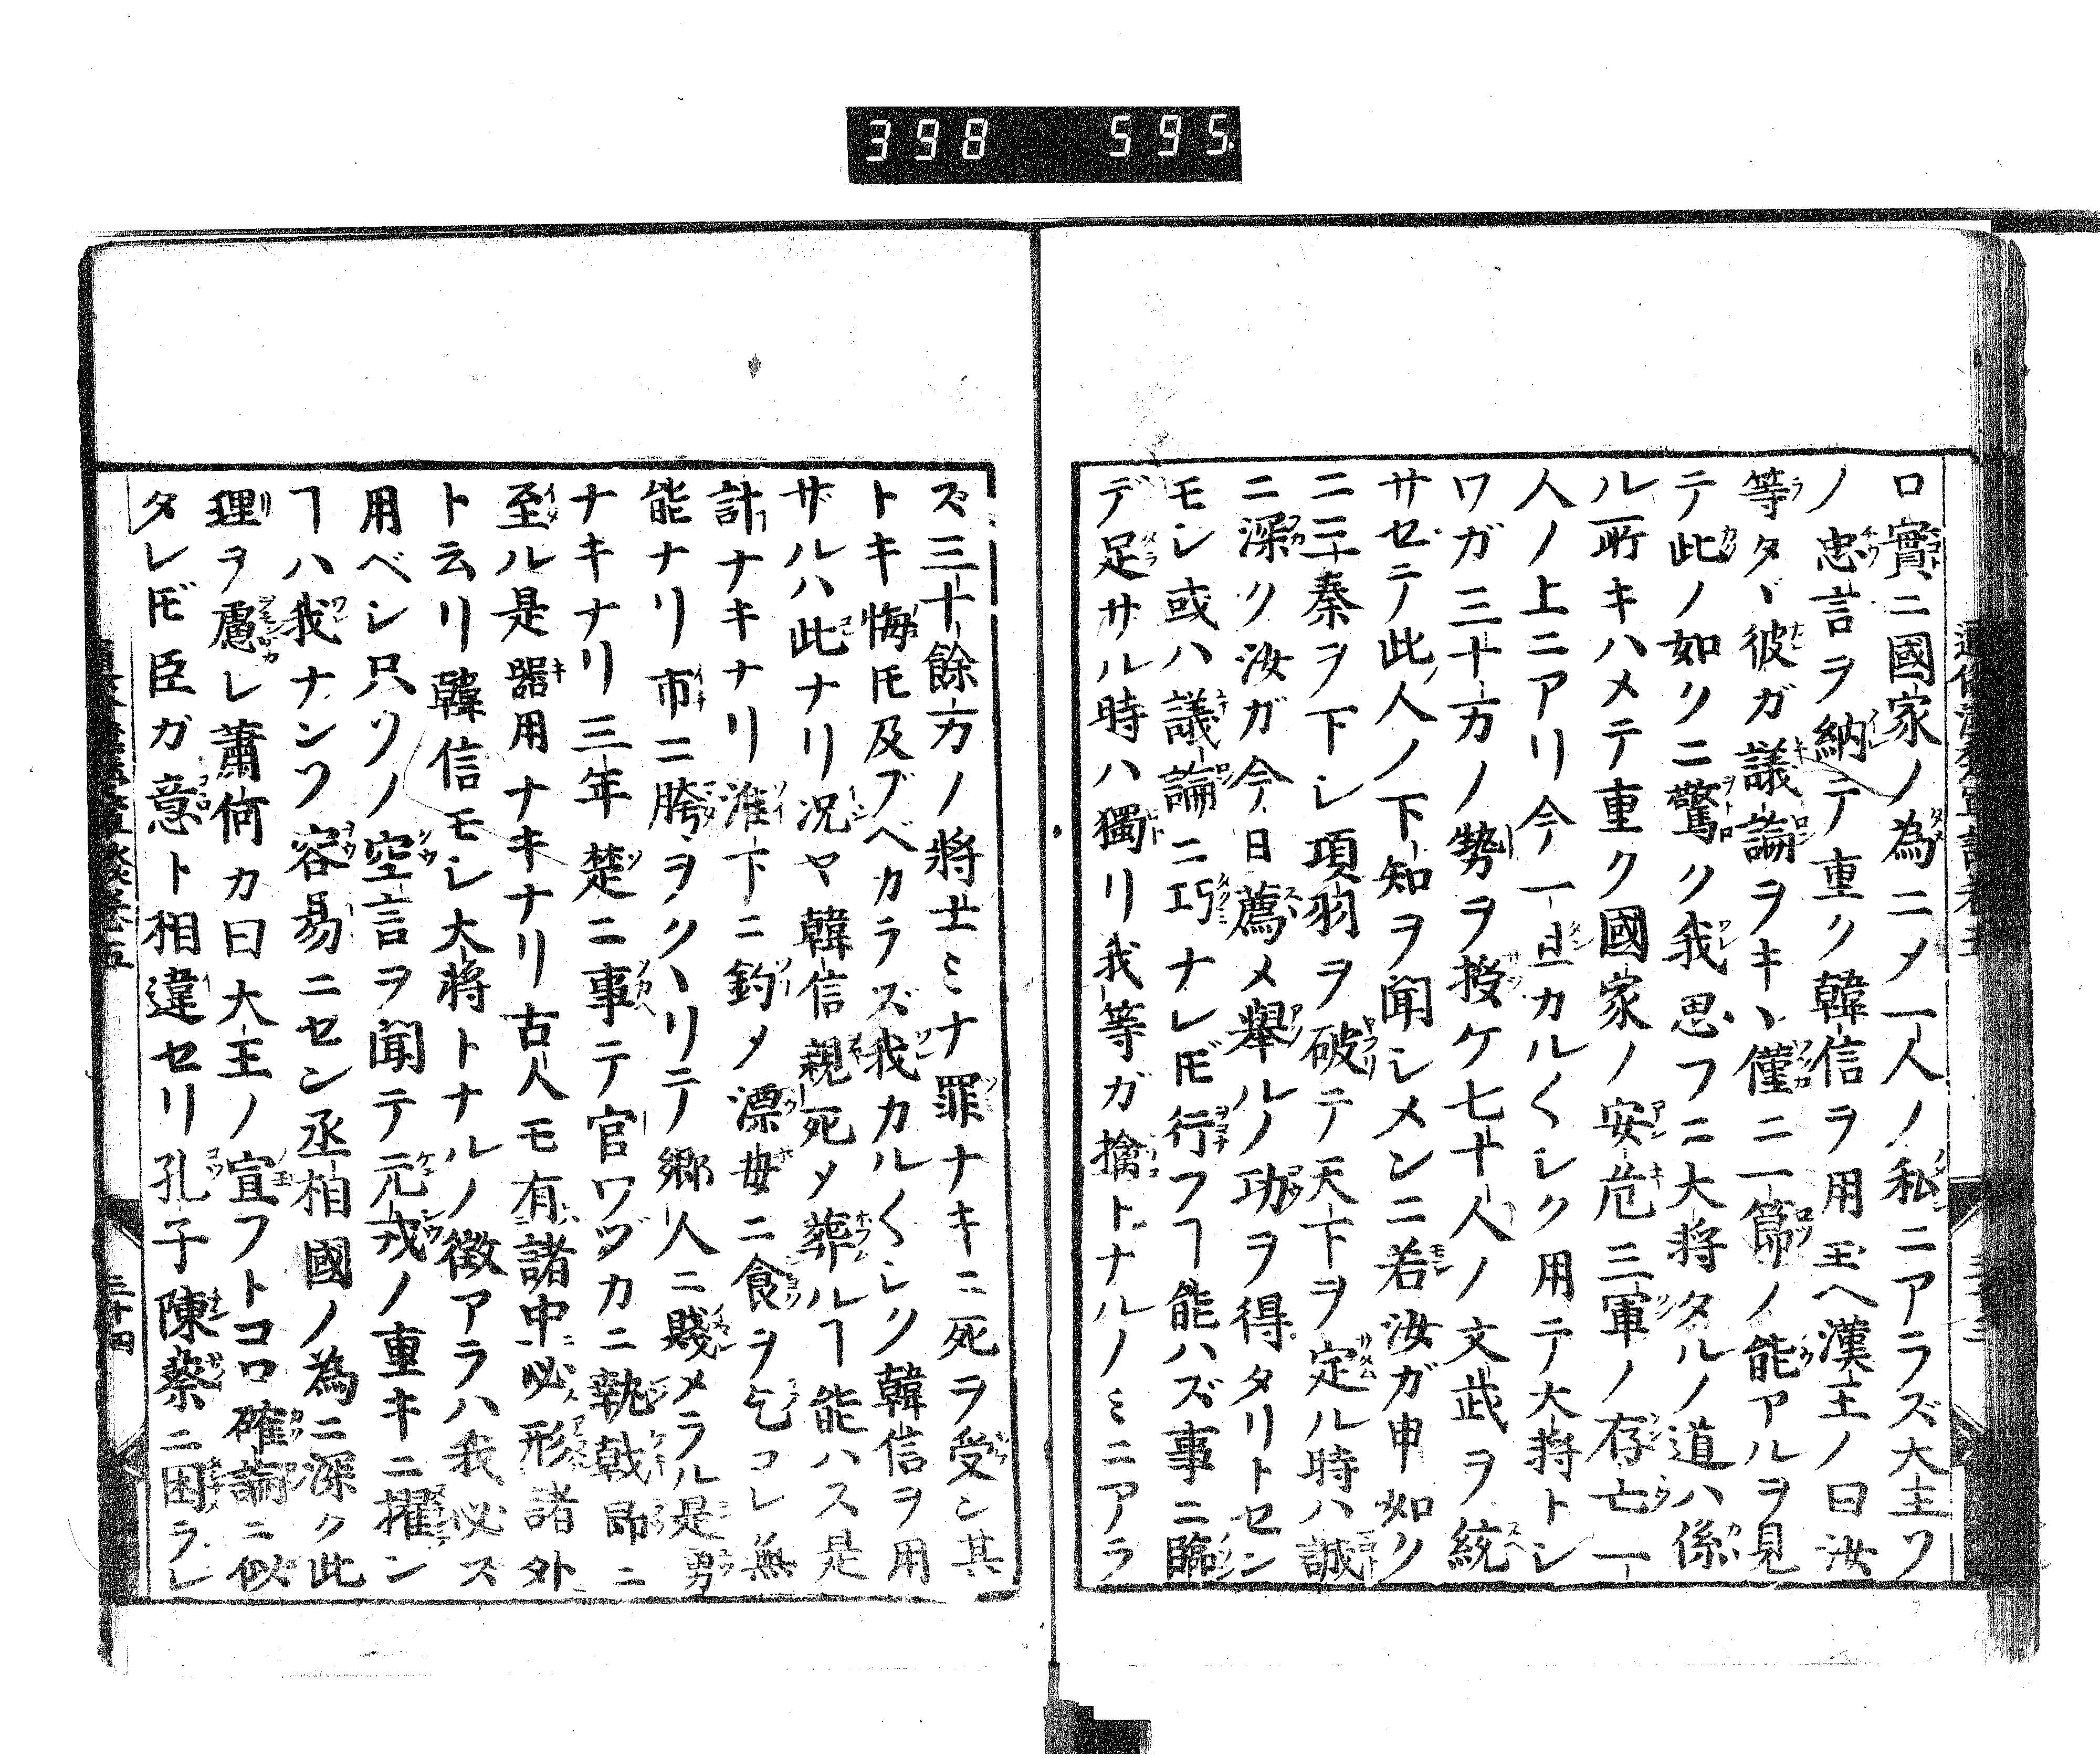 398 595
ロ實ニ國家ノ為ニメ一人ノ私ニアラズ大王ワ
ノ忠言ヲ納テ重ク韓信ヲ用玉ヘ漢王ノ曰汝
等タヾ彼ガ議論ヲキヽ僅ニ一節ノ能アルヲ見
テ此ノ如クニ驚ク我思フニ大将タルノ道ハ係
ル所キハメテ重ク國家ノ安危三軍ノ存亡一
人ノ上ニアリ今一旦カル〱シク用テ大将トシ
ワガ三十万ノ勢ヲ授ケ七十人ノ文武ヲ統
サセテ此人ノ下知ヲ聞シメンニ若汝ガ申如ク
ニ三秦ヲ下シ項羽ヲ破テ天下ヲ定ル時ハ誠
ニ深ク汝ガ今日薦メ舉ルノ功ヲ得タリトセン
モシ或ハ議論ニ巧ナレ𪜈行フヿ能ハズ事ニ臨
デ足サル時ハ獨リ我等ガ擒トナルノミニアラ
ズ三十餘万ノ將士ミナ罪ナキニ死ヲ受シ其
トキ悔𪜈及ブベカラズ我カル〱シク韓信ヲ用
ザルハ此ナリ况ヤ韓信親死メ葬ルヿ能ハス是
計ナキナリ淮下ニ釣メ漂母ニ食ヲ乞コレ無
能ナリ市ニ胯ヲクヽリテ郷人ニ賤メラル是男
ナキナリ三年楚ニ事テ官ワヅカニ執戟郎ニ
至ル是器用ナキナリ古人モ有諸中必形諸外
ト云リ韓信モシ大將トナルノ徴アラハ我必ス
用ベシ只ソノ空言ヲ聞テ元戎ノ重キニ擢ン
ヿハ我ナンソ容易ニセン丞相國ノ為ニ深ク此
理ヲ慮レ蕭何カ曰大王ノ宣フトコロ確論ニ似
タレ𪜈臣ガ意ト相違セリ孔子陳蔡ニ困ラレ
三十四